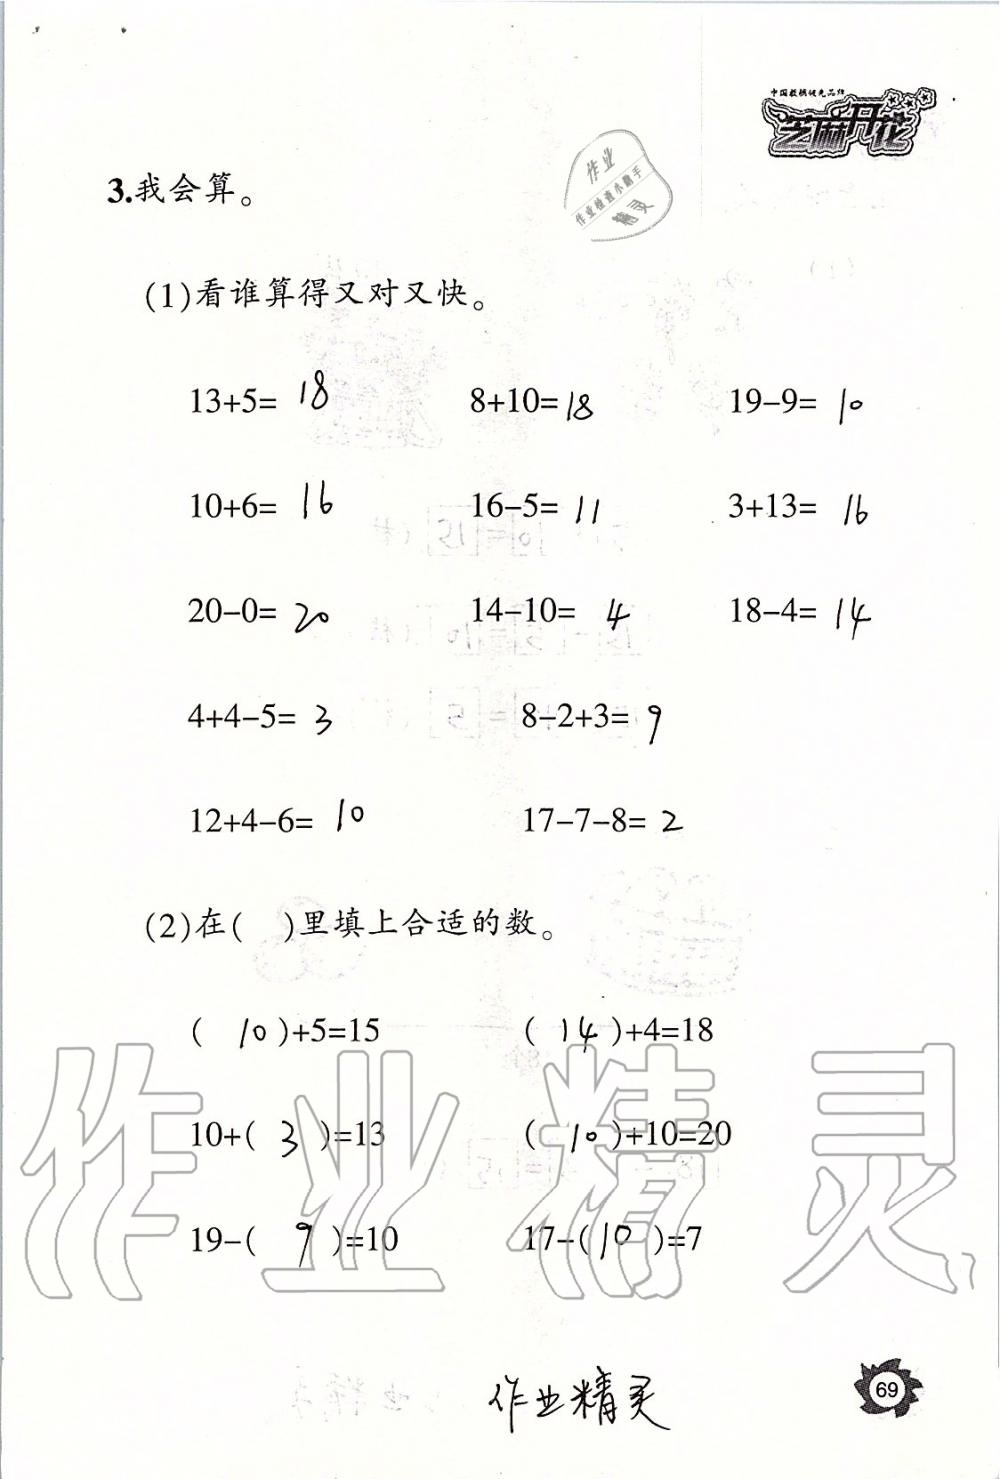 中国教辅领先品牌
芝麻开花
作业
作业检查小助手
精灵
3.我会算。
(1)看谁算得又对又快。
13+5= 18 8+10= 18 19-9= 10
10+6= 16 16-5= 11 3+13= 16
20-0= 20 14-10= 4 18-4= 14
4+4-5= 3 8-2+3= 9
12+4-6= 10 17-7-8= 2
(2)在( )里填上合适的数。
( 10 )+5=15 ( 14 )+4=18
10+( 3 )=13 ( 10 )+10=20
19-( 9 )=10 17-( 10 )=7
作业精灵
作业精灵
69